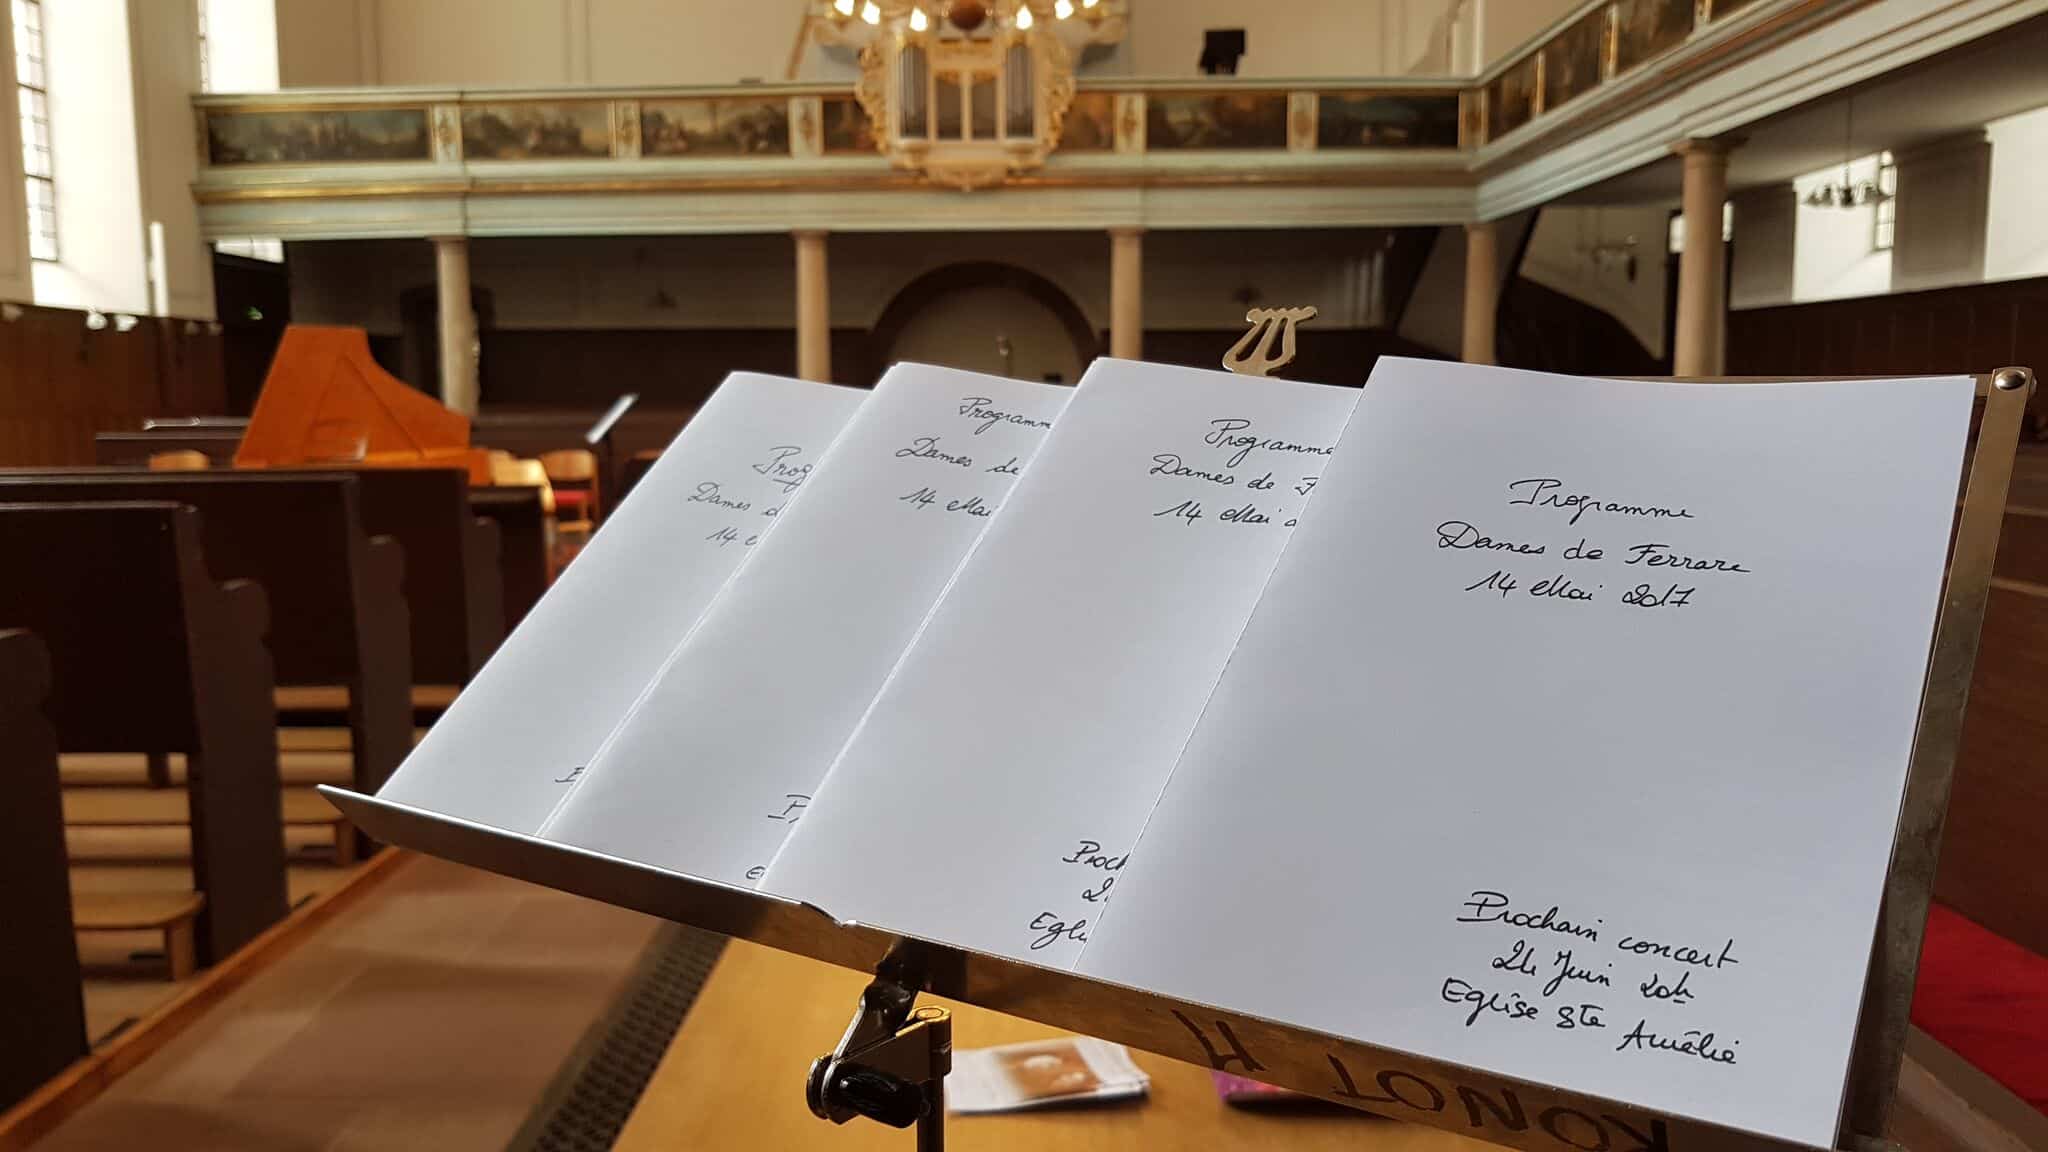 Prog
Dames d
14
Programm
Dames de
14 Mai
Programme
Dames de F
14 Mai
Proch
Eglis
Programme
Dames de Ferrare
14 Mai 2017
Prochain concert
24 Juin 20h
Eglise Ste Aurélie